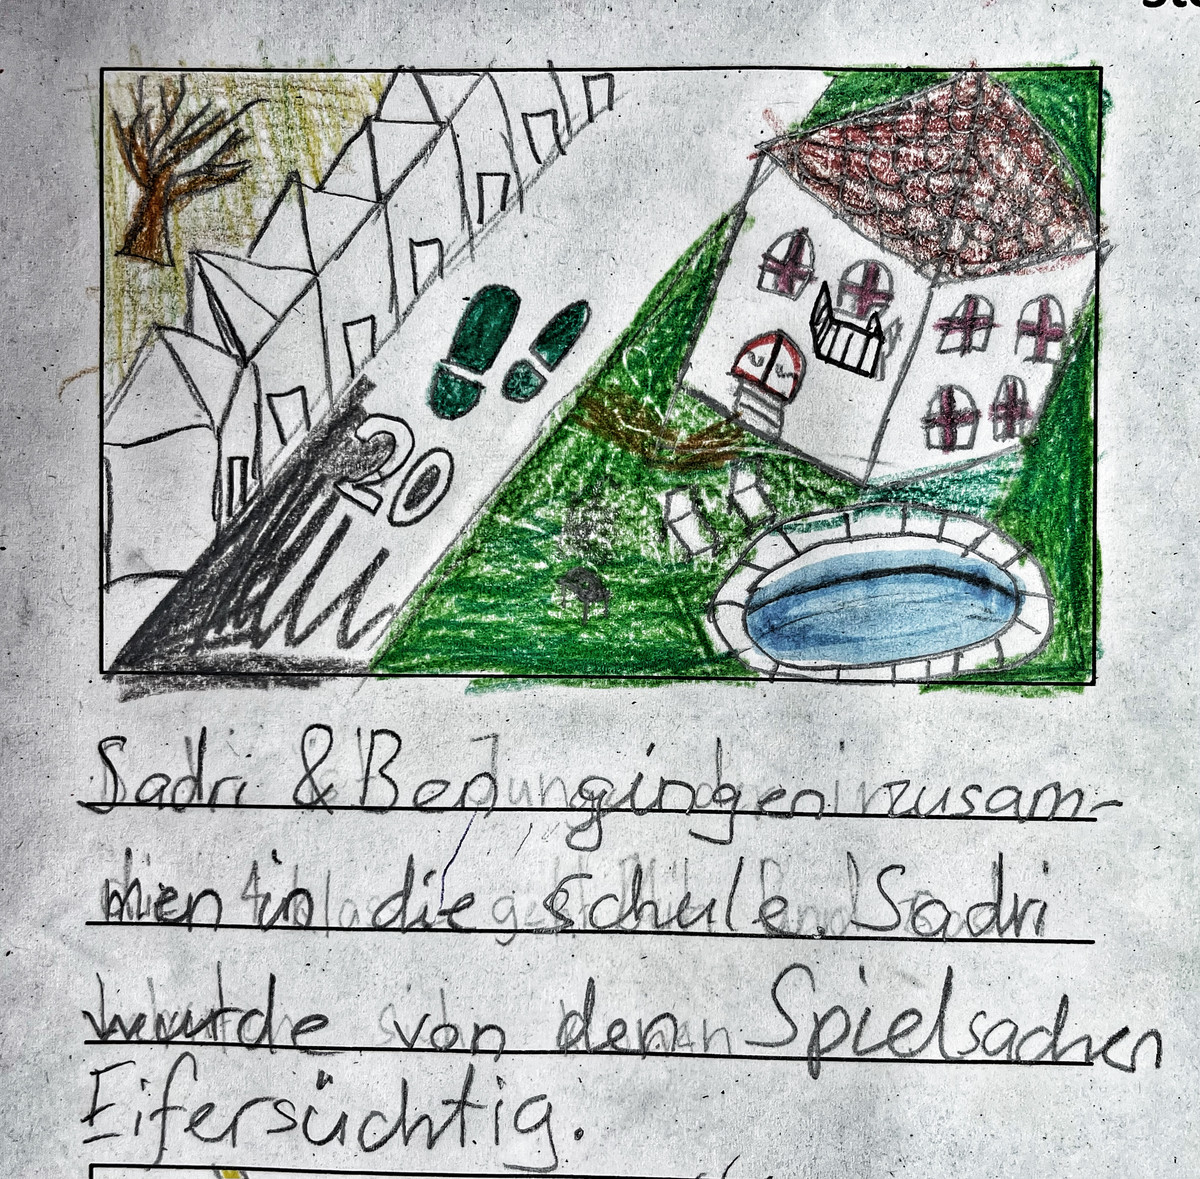 20
Sadri & Ben gingen zusam-
men in die schule. Sadri
wurde von den Spielsachen
Eifersüchtig.